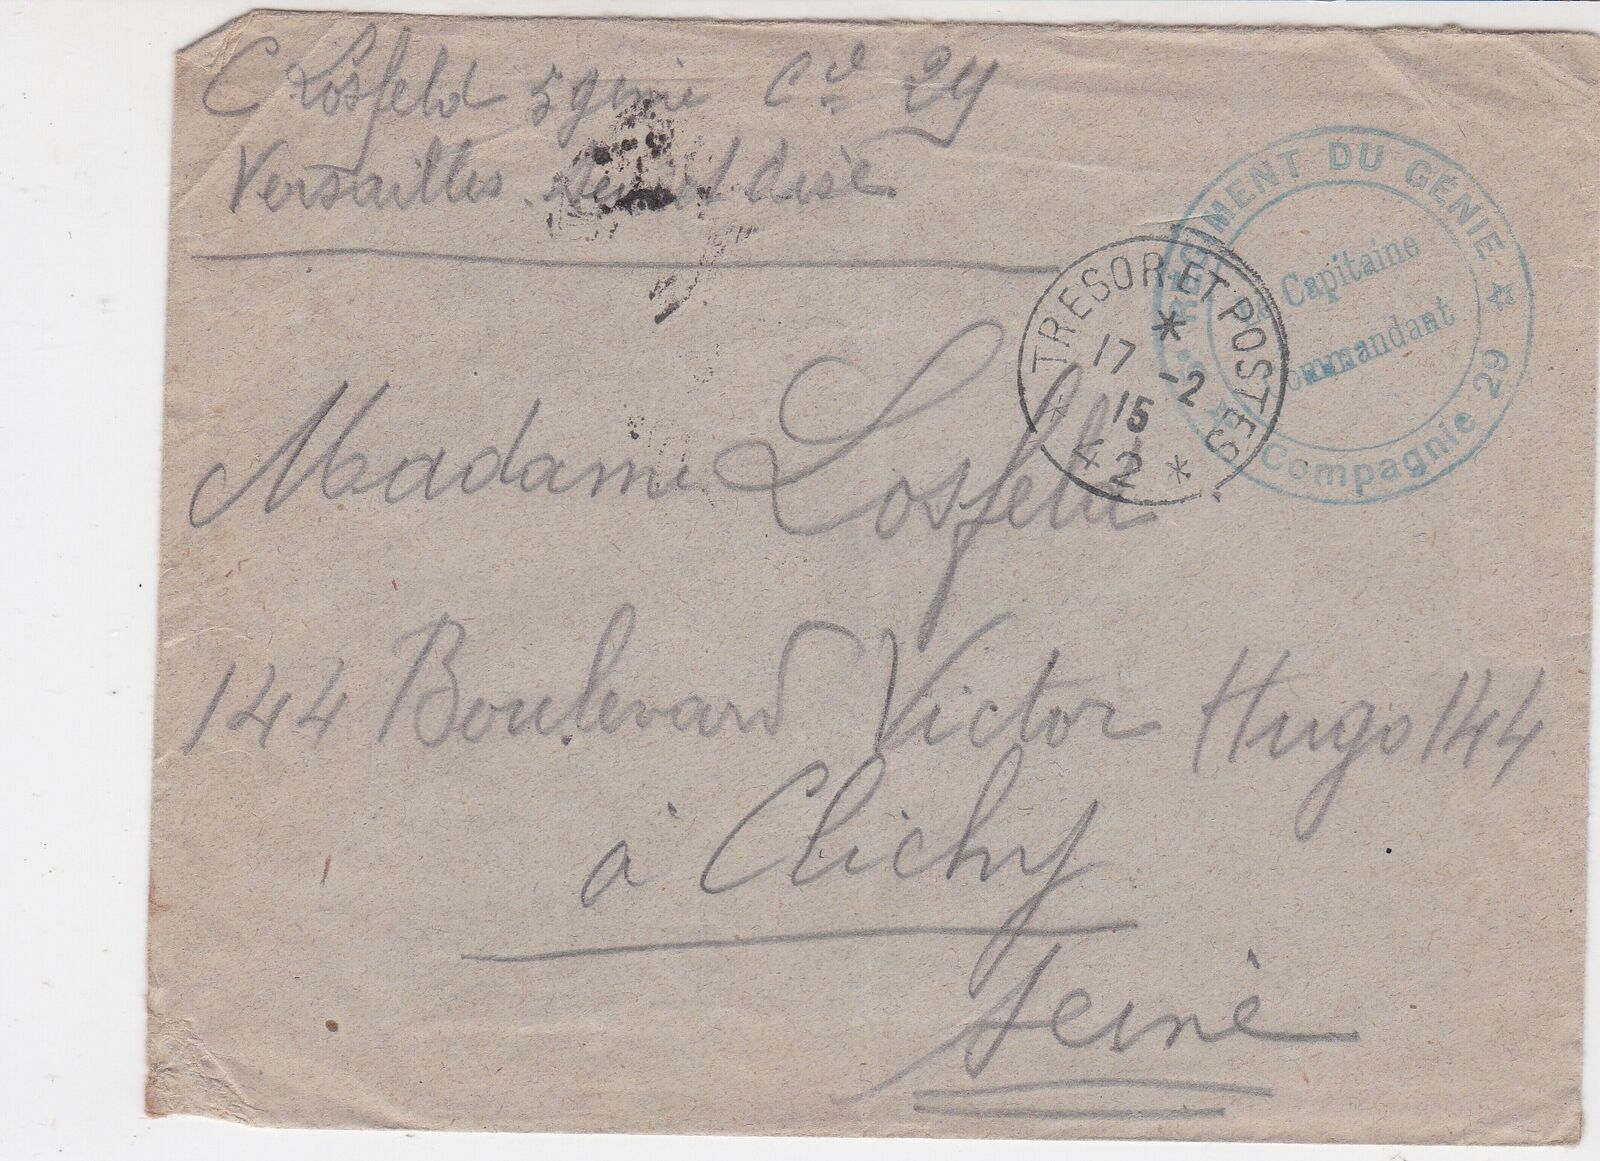 C Losfeld 5 génie Cie 29
Versailles. Seine et Oise
RÉGIMENT DU GÉNIE
Le Capitaine
Commandant
Compagnie 29
TRESOR ET POSTES
17 -2
15
42
Madame Losfeld
144 Boulevard Victor Hugo 144
à Clichy
Seine